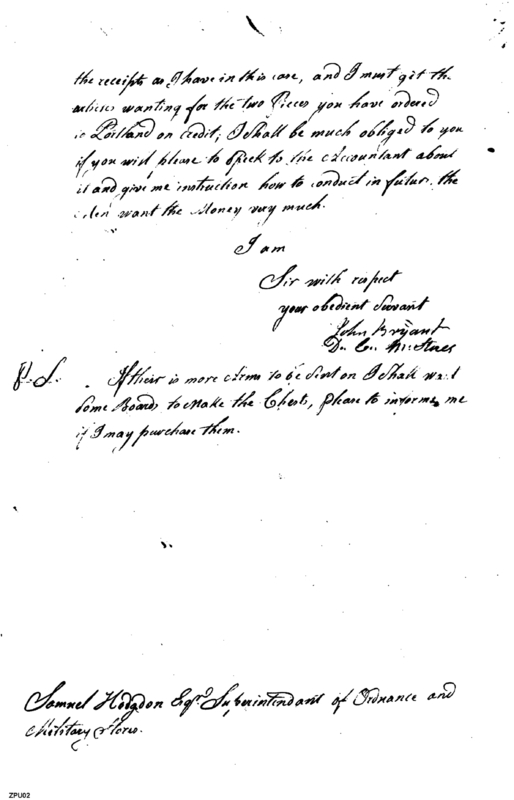 the receipts as I have in this case, and I must get the
articles wanting for the two Pieces you have ordered
to Portland on credit; I shall be much obliged to you
if you will please to speek to the Accountant about
it and give me instruction how to conduct in future. the
Men want the Money very much.
I am
Sir with respect
your obedient Servant
John Bryant
D. C. M. Stores
P.S. If their is more Arms to be sent on I shall want
some Boards to make the Chests, please to informe me
if I may purchase them.
Samuel Hodgdon Esqr. Superintendant of Ordnance and
Military Stores.
ZPU02